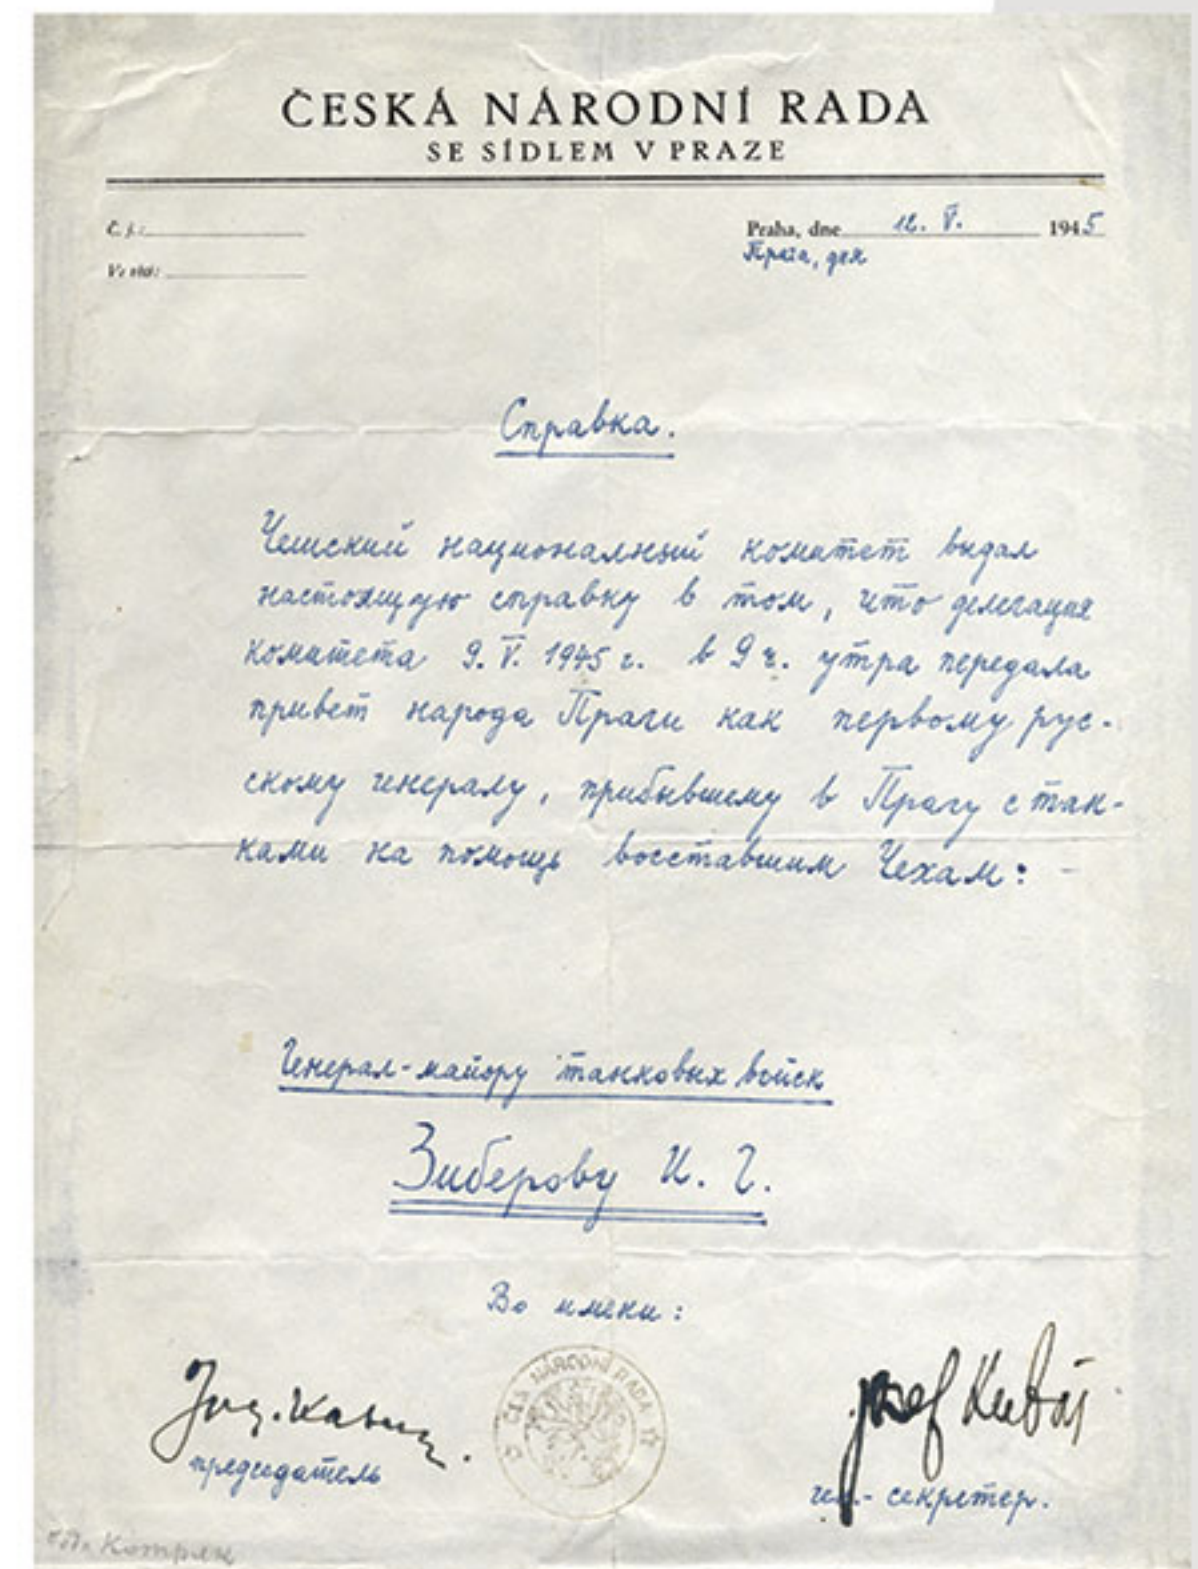 ČESKÁ NÁRODNÍ RADA
SE SÍDLEM V PRAZE
Č. j.:
V
Praha, dne 12. V. 1945
Прага, дня
Справка.
Чешский националний комитет выдал
настоящую справку в том, что делегация
комитета 9. V. 1945 г. в 9 ч. утра передала
привет народа Праги как первому рус-
скому генералу, прибывшему в Прагу с тан-
ками на помощь восставшим Чехам: -
Генерал-майору танковых войск
Зиберову И. Г.
Во имени:
ČES. NÁRODNÍ RADA
Josef
председатель
ген.- секретер.